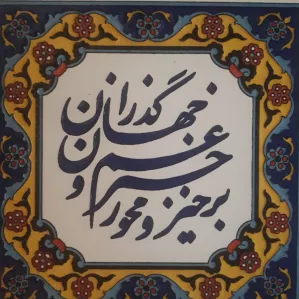 برخیز و مخور
غم
جهان
گذران